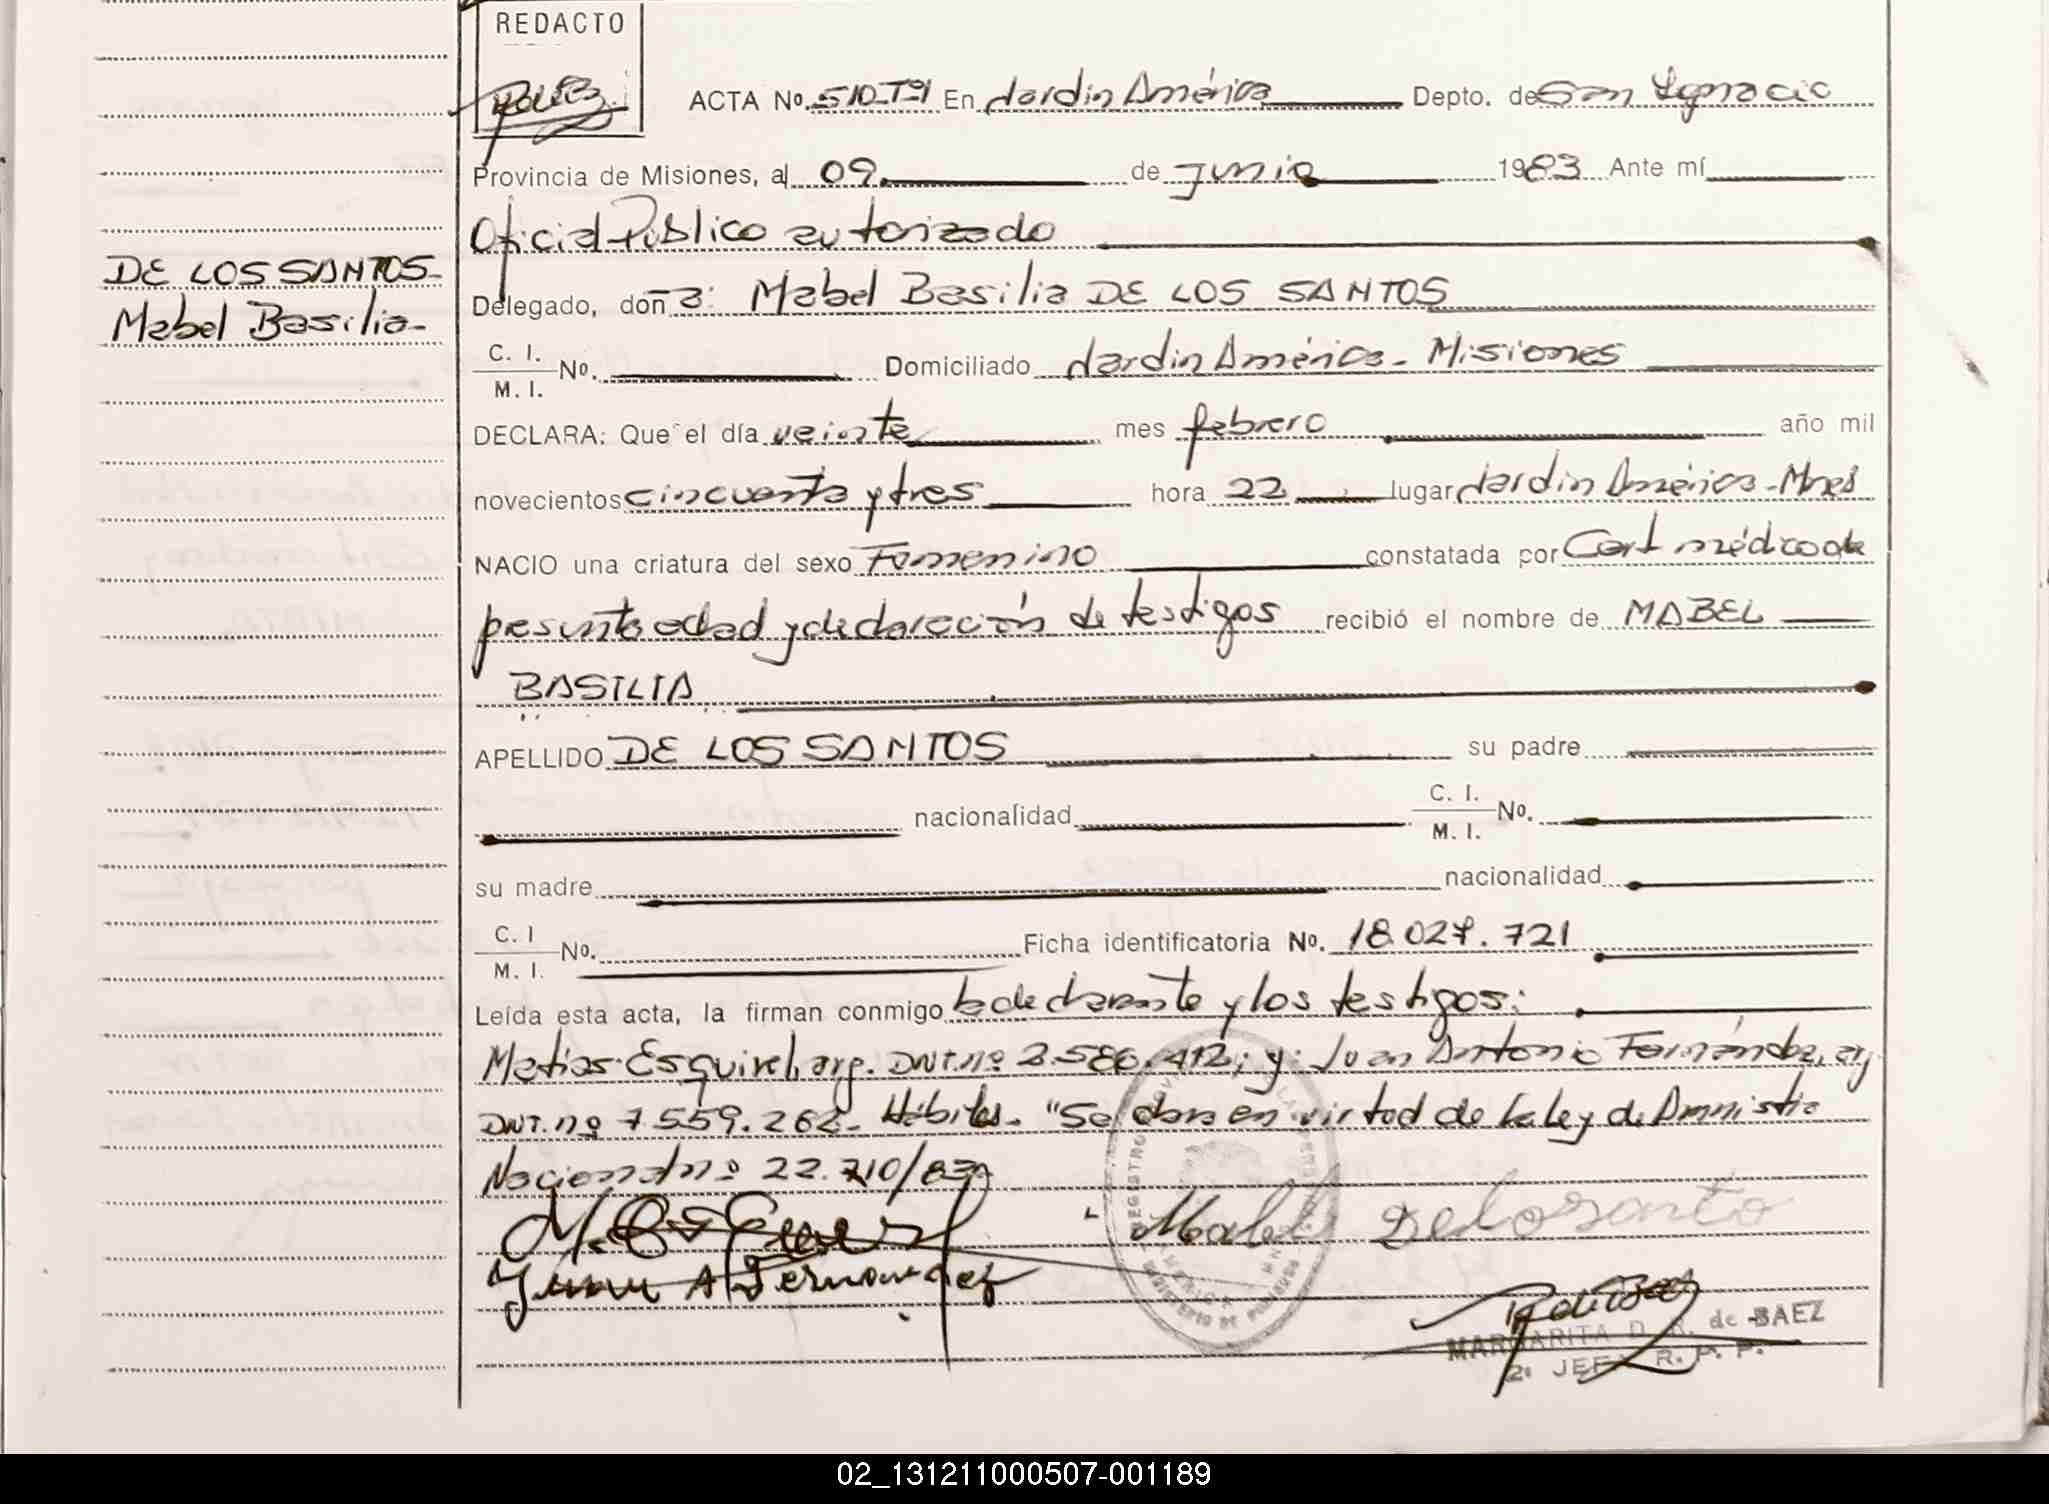 REDACTO
ACTA No. 510-T91 En Jardin América Depto. de San Ygnacio
Provincia de Misiones, a 09 de junio 1983 Ante mí
Oficial Público autorizado
DE LOS SANTOS-
Delegado, don a: Mabel Basilia DE LOS SANTOS
Mabel Basilia-
C. I.
M. I. No. Domiciliado Jardin América - Misiones
DECLARA: Que el día veinte mes febrero año mil
novecientos cincuenta y tres hora 22 lugar Jardin América - Mnes
NACIO una criatura del sexo Femenino constatada por Cert médico de
presunta edad y declaración de testigos recibió el nombre de MABEL
BASILIA
APELLIDO DE LOS SANTOS su padre
nacionalidad C. I.
M. I. No.
su madre nacionalidad
C. I
M. I. No. Ficha identificatoria No. 18.027.721
Leída esta acta, la firman conmigo la declarante y los testigos:
Matias Esquivel, arg. DNI. nº 2.586.412; y: Juan Antonio Fernández, arg
DNI. nº 7.559.262- Hábiles. "Se labra en virtud de la Ley de Amnistia
Nacional nº 22.710/83
Mabel Delosanto
Juan A Fernandez
MARGARITA D. R. de BAEZ
2º JEFE R. P. P.
02_131211000507-001189